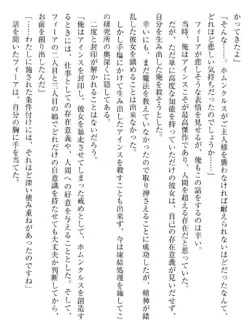 かつてきたよ」
「そんな……ホムンクルスがご主人様を嫌わなければ耐えられないほどだったなんて、
どれほど悲しい気持ちだったのでしょうか……」
　フィーアが悲しそうな表情を見せるが、俺もこの話をするのは辛い。
　当時、俺はアインスこそが最高傑作であり、人間を超える存在だと思っていた。
　だが、ただ単に高度な知能を持っていただけの彼女は、自己の存在意義が見いだせず、
自分を生み出した俺を殺そうとした。
　幸いにも、まだ魔法を教えていなかったので取り押さえることは出来たが、精神が備
わることはなかった。
　しかし手塩にかけて生み出したアインスを殺すことも出来ず、今は凍結処理を施してこ
の研究所の奥深くに隠してある。
　二度と封印が解かれることはないだろう。
「俺はアインスを封印し、彼女を暴走させてしまった戒めとして、ホムンクルスを創造す
るときには、仕事としての存在意義や、人間への奉仕を与えることにした。それが成功し、
フィーアの二人目と三人目でこれだけの自意識を持たせても大丈夫だと判断してから、
お前を創り出したんだ」
「……わたしに施された条件付けには、それほど深い積み重ねがあったのですね」
　話を聞いたフィーアは、自分の胸に手を当てた。